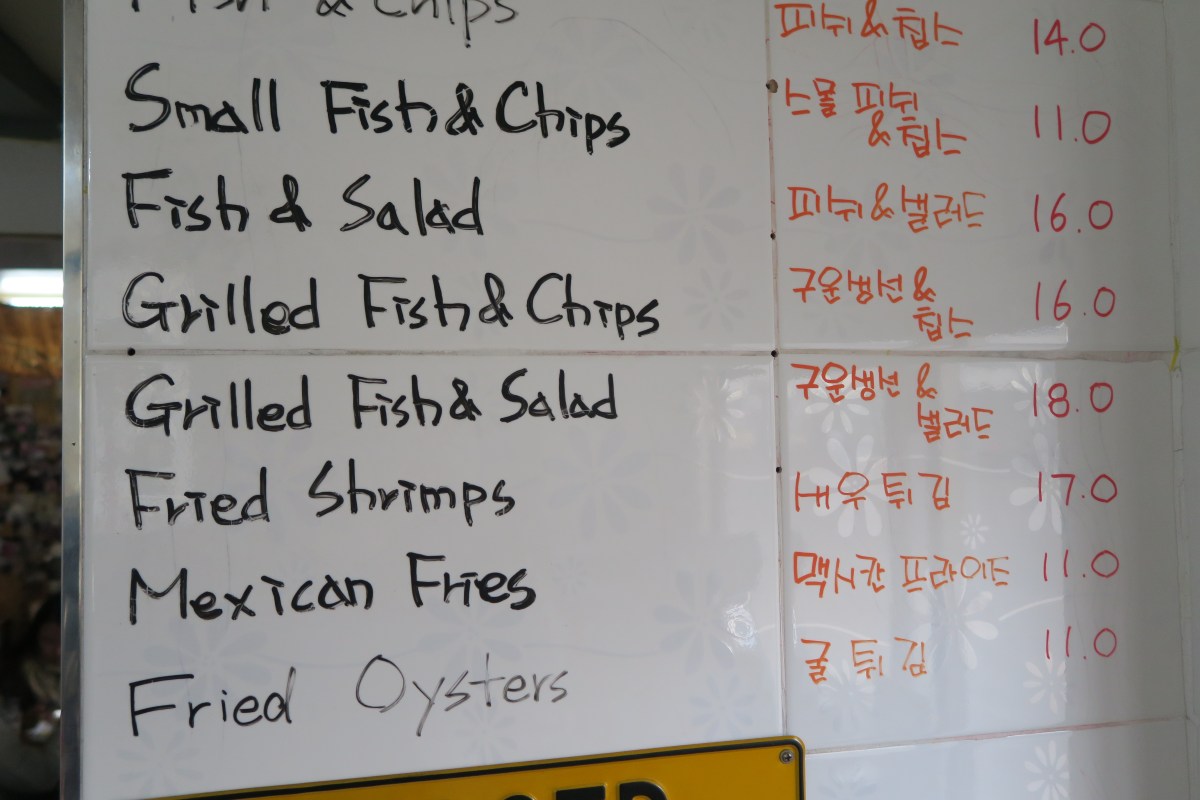 Fish & Chips 피쉬&칩스 14.0
Small Fish & Chips 스몰 피쉬 11.0
&칩스
Fish & Salad 피쉬&샐러드 16.0
Grilled Fish & Chips 구운생선 & 16.0
칩스
Grilled Fish & Salad 구운생선 & 18.0
샐러드
Fried Shrimps 새우 튀김 17.0
Mexican Fries 맥시칸 프라이드 11.0
Fried Oysters 굴 튀김 11.0